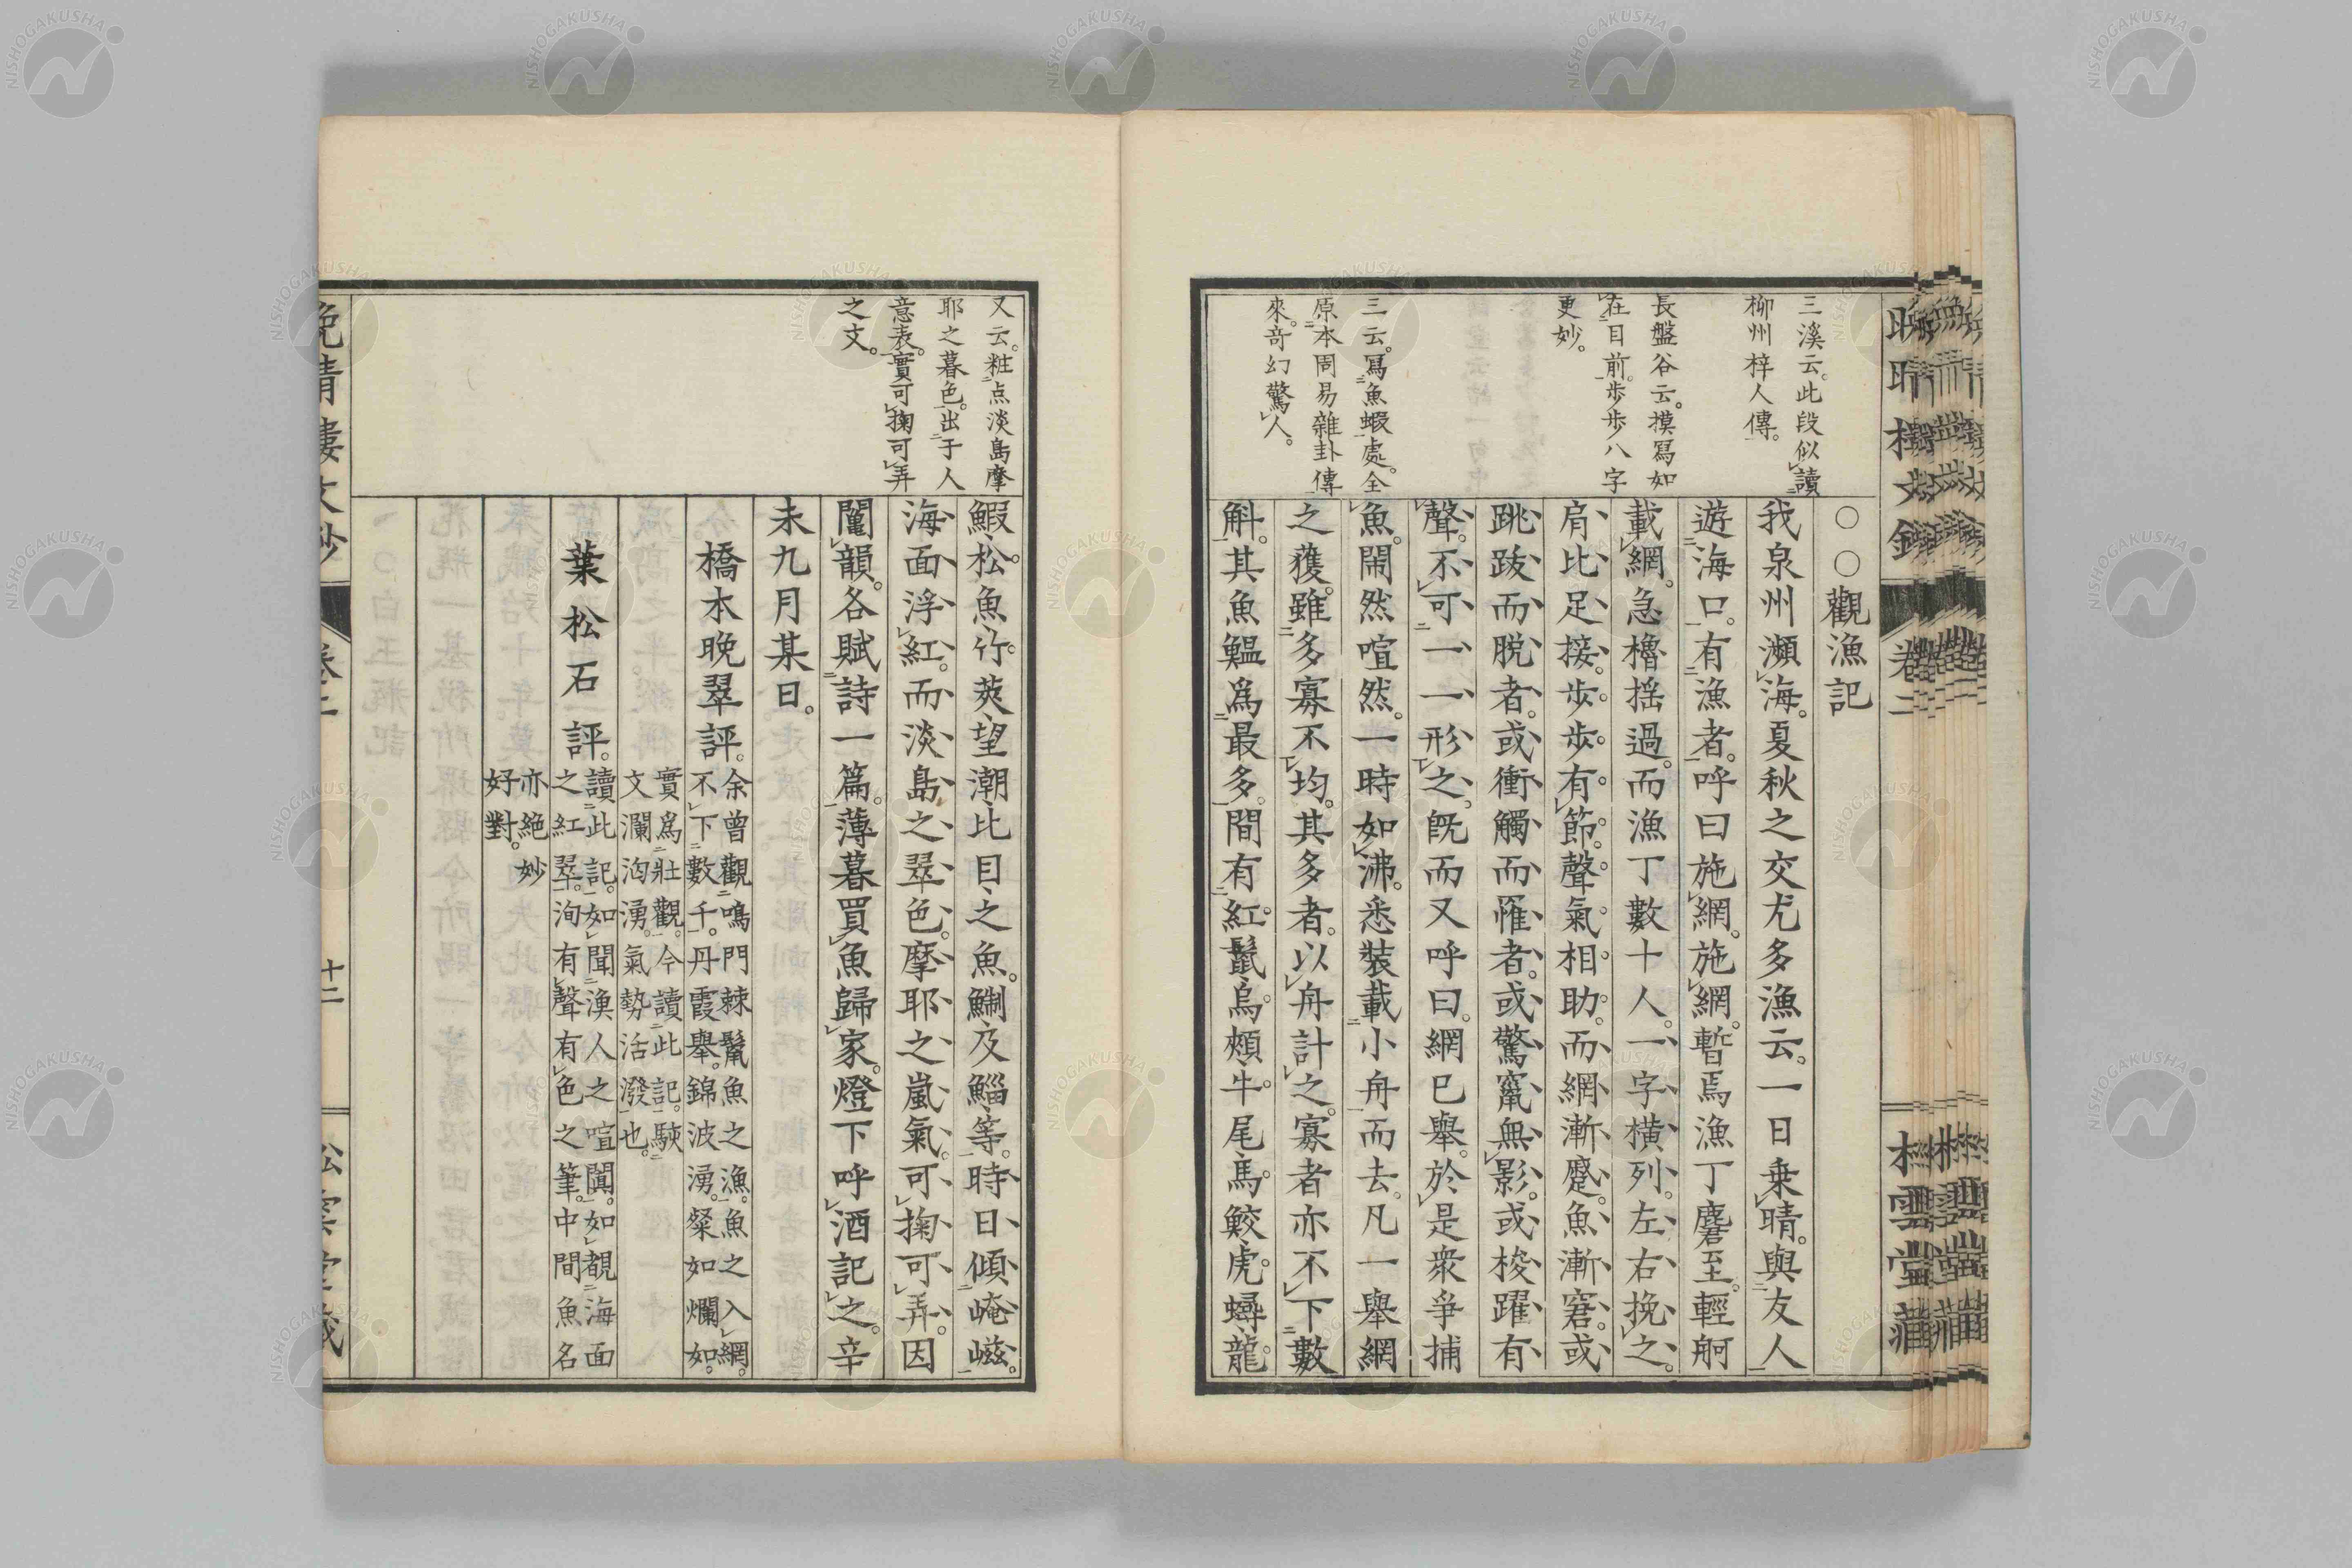 三溪云。此段似讀
柳州梓人傳。
長盤谷云。摸寫如
在目前。步步八字
更妙。
三云。寫魚蝦處。全
原本周易雜卦傳
來。奇幻驚人。
○○觀漁記
我泉州瀕海。夏秋之交尤多漁云。一日乘晴。與友人
遊海口。有漁者。呼曰施網。施網。暫焉漁丁麕至。輕舸
載網。急櫓搖過。而漁丁數十人。一字橫列。左右挽之。
肩比足接。步步有節。聲氣相助。而網漸蹙。魚漸窘。或
跳跋而脫者。或衝觸而罹者。或驚竄無影。或梭躍有
聲。不可一一形之。既而又呼曰。網已舉。於是衆爭捕
魚。鬧然喧然。一時如沸。悉裝載小舟而去。凡一舉網
之獲。雖多寡不均。其多者。以舟計之。寡者亦不下數
斛。其魚鰛爲最多。間有紅鬣。烏頰。牛尾。馬鮫。虎蟳。龍
又云。粧点淡島摩
耶之暮色。出于人
意表。實可掬可弄
之文。
鰕。松魚。竹莢。望潮。比目之魚。鯯及鯔等。時日傾崦嵫。
海面浮紅。而淡島之翠色。摩耶之嵐氣。可掬可弄。因
鬮韻。各賦詩一篇。薄暮買魚歸家。燈下呼酒記之。辛
未九月某日。
橋本晚翠評。余曾觀鳴門棘鬣魚之漁。魚之入網。
不下數千。丹霞舉。錦波湧。粲如爛如。
實爲壯觀。今讀此記。
文瀾洶湧。氣勢活潑也。
葉松石評。讀此記。如聞漁人之喧闐。如覩海面
之紅翠。洵有聲有色之筆。中間魚名
亦絕妙
好對。
晩晴樓文鈔
卷二
十二
松雲堂藏